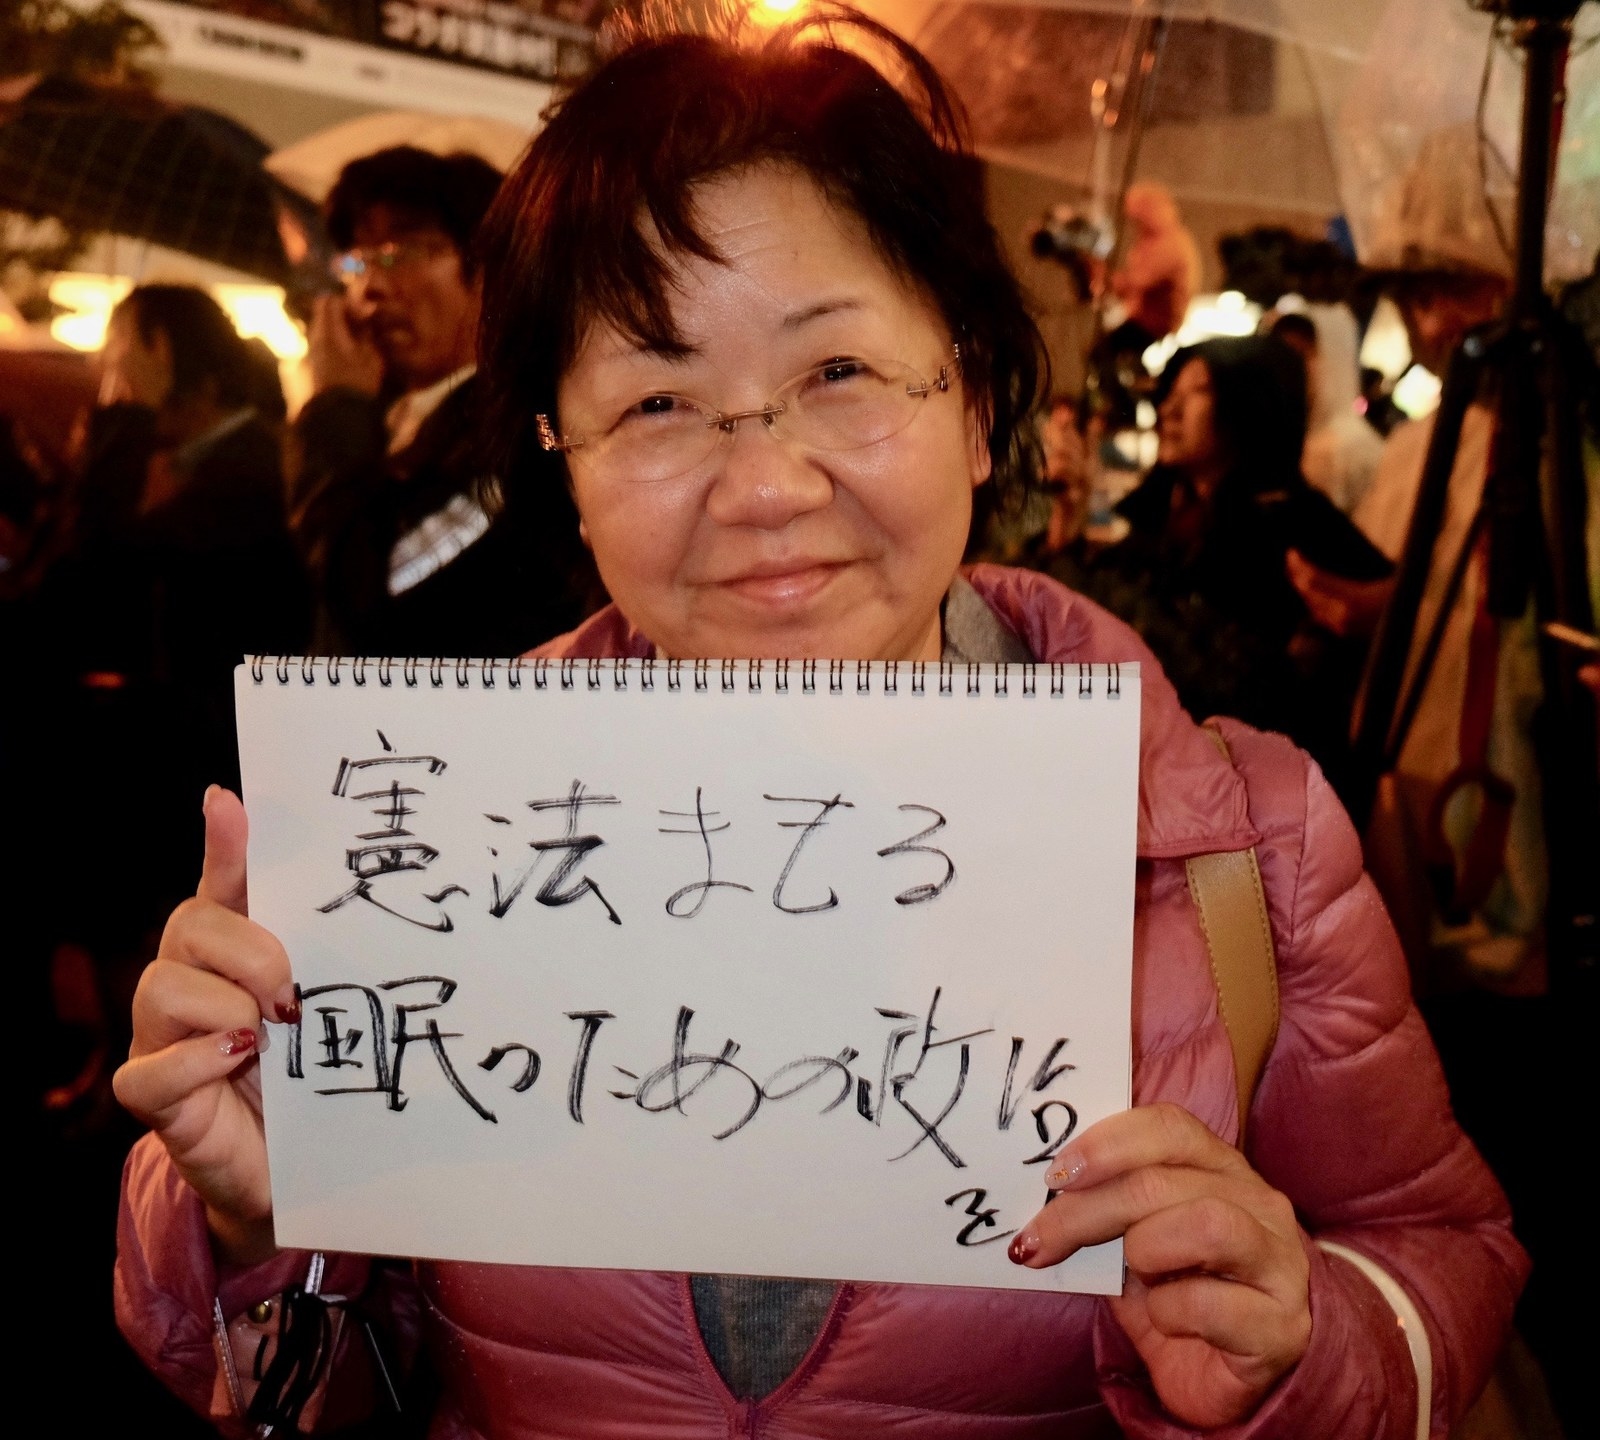 憲法まもる
国民のための政治
を